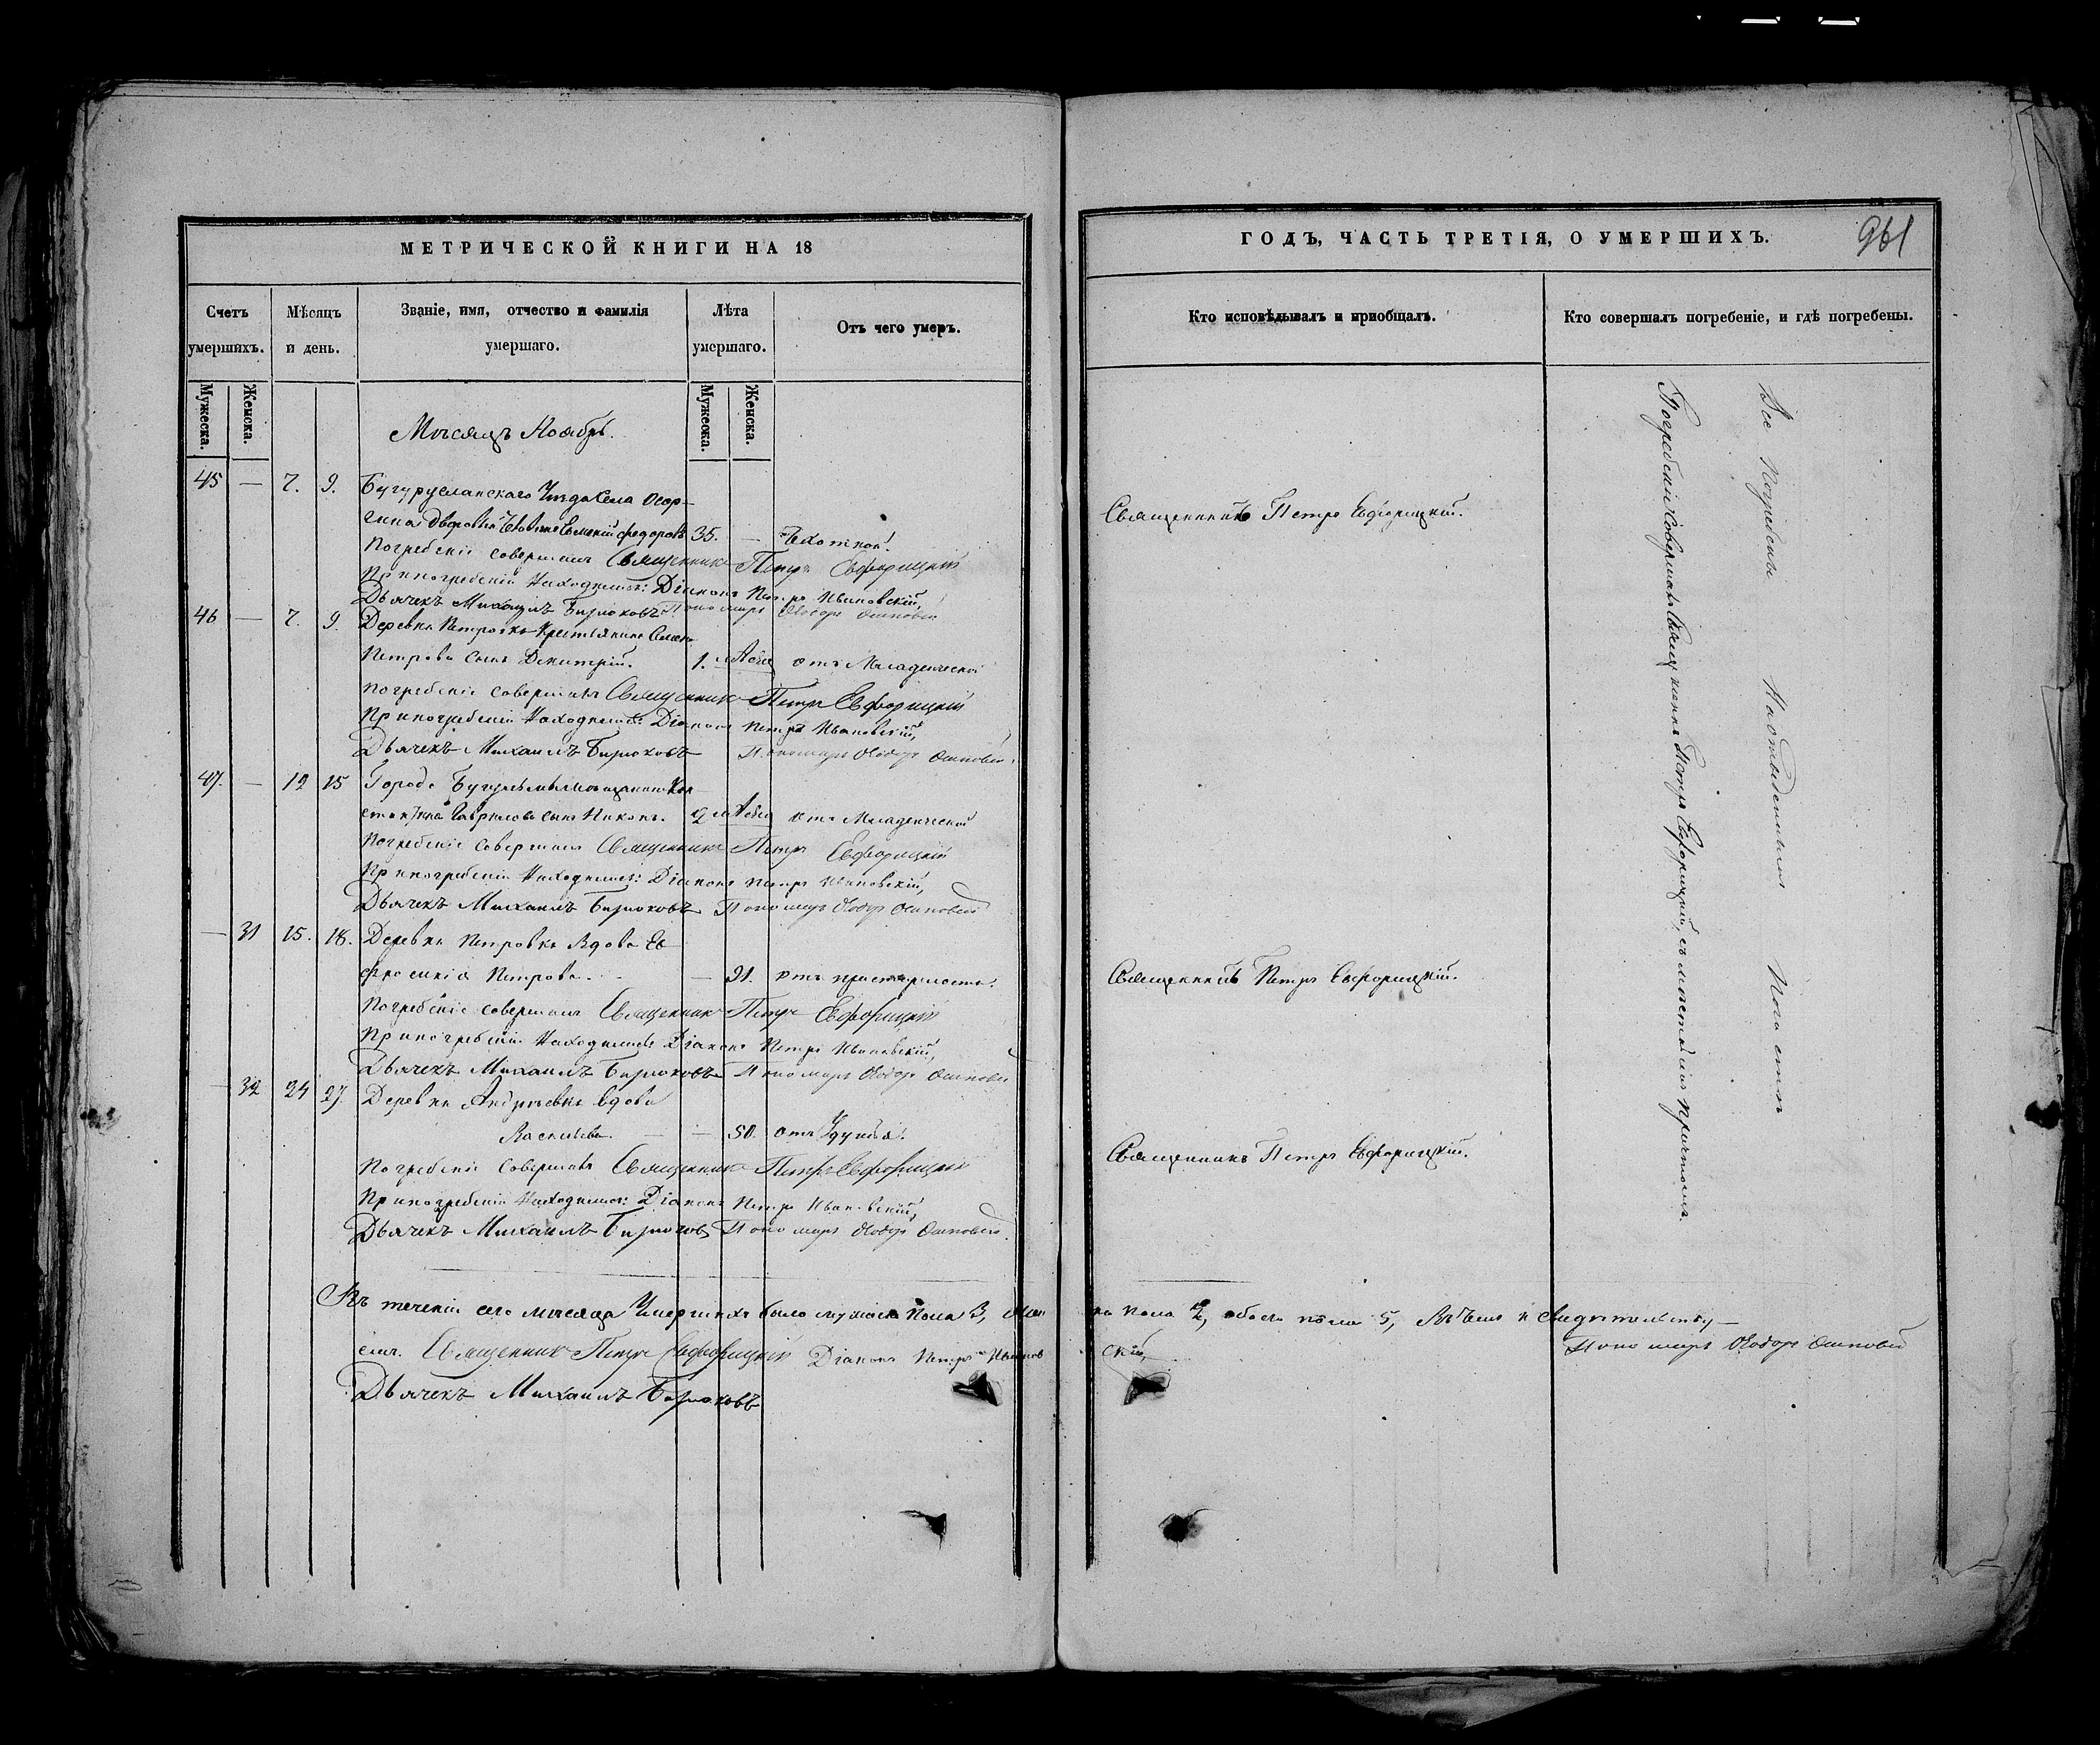 МЕТРИЧЕСКОЙ КНИГИ НА 18
Счетъ умершихъ.
Мужеска.
Женска.
Мѣсяцъ и день.
Званіе, имя, отчество и фамилія умершаго.
Лѣта умершаго.
Мужеска.
Женска.
Отъ чего умеръ.
Мѣсяцъ Ноябрь.
45 — 7. 9. Бугурусланскаго Уѣзда Села
Федоровъ 35. — Чахоткой.
Погребеніе совершалъ Священникъ Петръ Евфорицкій
При погребеніи находились: Діаконъ Петръ Ивановскій,
Дьячекъ Михаилъ Бирюковъ Пономарь Ѳеодоръ
46 — 7. 9. Деревни Петровки крестьянина
Петрова сынъ Димитрій. 1. отъ Младенческой
Погребеніе совершалъ Священникъ Петръ Евфорицкій
При погребеніи находились: Діаконъ Петръ Ивановскій,
Дьячекъ Михаилъ Бирюковъ Пономарь Ѳеодоръ
47. — 12 15 Города Бугульмы мѣщанина Кон-
стантина Гаврилова сынъ Никонъ. отъ Младенческой
Погребеніе совершалъ Священникъ Петръ Евфорицкій
При погребеніи находились: Діаконъ Петръ Ивановскій,
Дьячекъ Михаилъ Бирюковъ Пономарь Ѳеодоръ
— 31 15. 18. Деревни Петровки Вдова Ев-
фросинія Петрова. — 91. отъ престарѣлости.
Погребеніе совершалъ Священникъ Петръ Евфорицкій
При погребеніи находились Діаконъ Петръ Ивановскій,
Дьячекъ Михаилъ Бирюковъ Пономарь Ѳеодоръ
— 32 24 27. Деревни Андреевки вдова
Васильева. — — 50. отъ удушья.
Погребеніе совершалъ Священникъ Петръ Евфорицкій
При погребеніи находились: Діаконъ Петръ Ивановскій,
Дьячекъ Михаилъ Бирюковъ Пономарь Ѳеодоръ
Въ теченіи сего мѣсяца Умершихъ было мужеска пола 3, жен
симъ. Священникъ Петръ Евфорицкій Діаконъ Петръ Иванов
Дьячекъ Михаилъ Бирюковъ
ГОДЪ, ЧАСТЬ ТРЕТІЯ, О УМЕРШИХЪ.
961
Кто исповѣдывалъ и пріобщалъ.
Кто совершалъ погребеніе, и гдѣ погребены.
Священникъ Петръ Евфорицкій.
Священникъ Петръ Евфорицкій.
Священникъ Петръ Евфорицкій.
Все Погребены На отведенномъ Погостѣ
Погребеніе совершалъ Священникъ Петръ Евфорицкій, съ мѣстнымъ причтомъ.
ка пола 2, обоего пола 5, въ чемъ и свидѣтельству—
скій,
Пономарь Ѳеодоръ